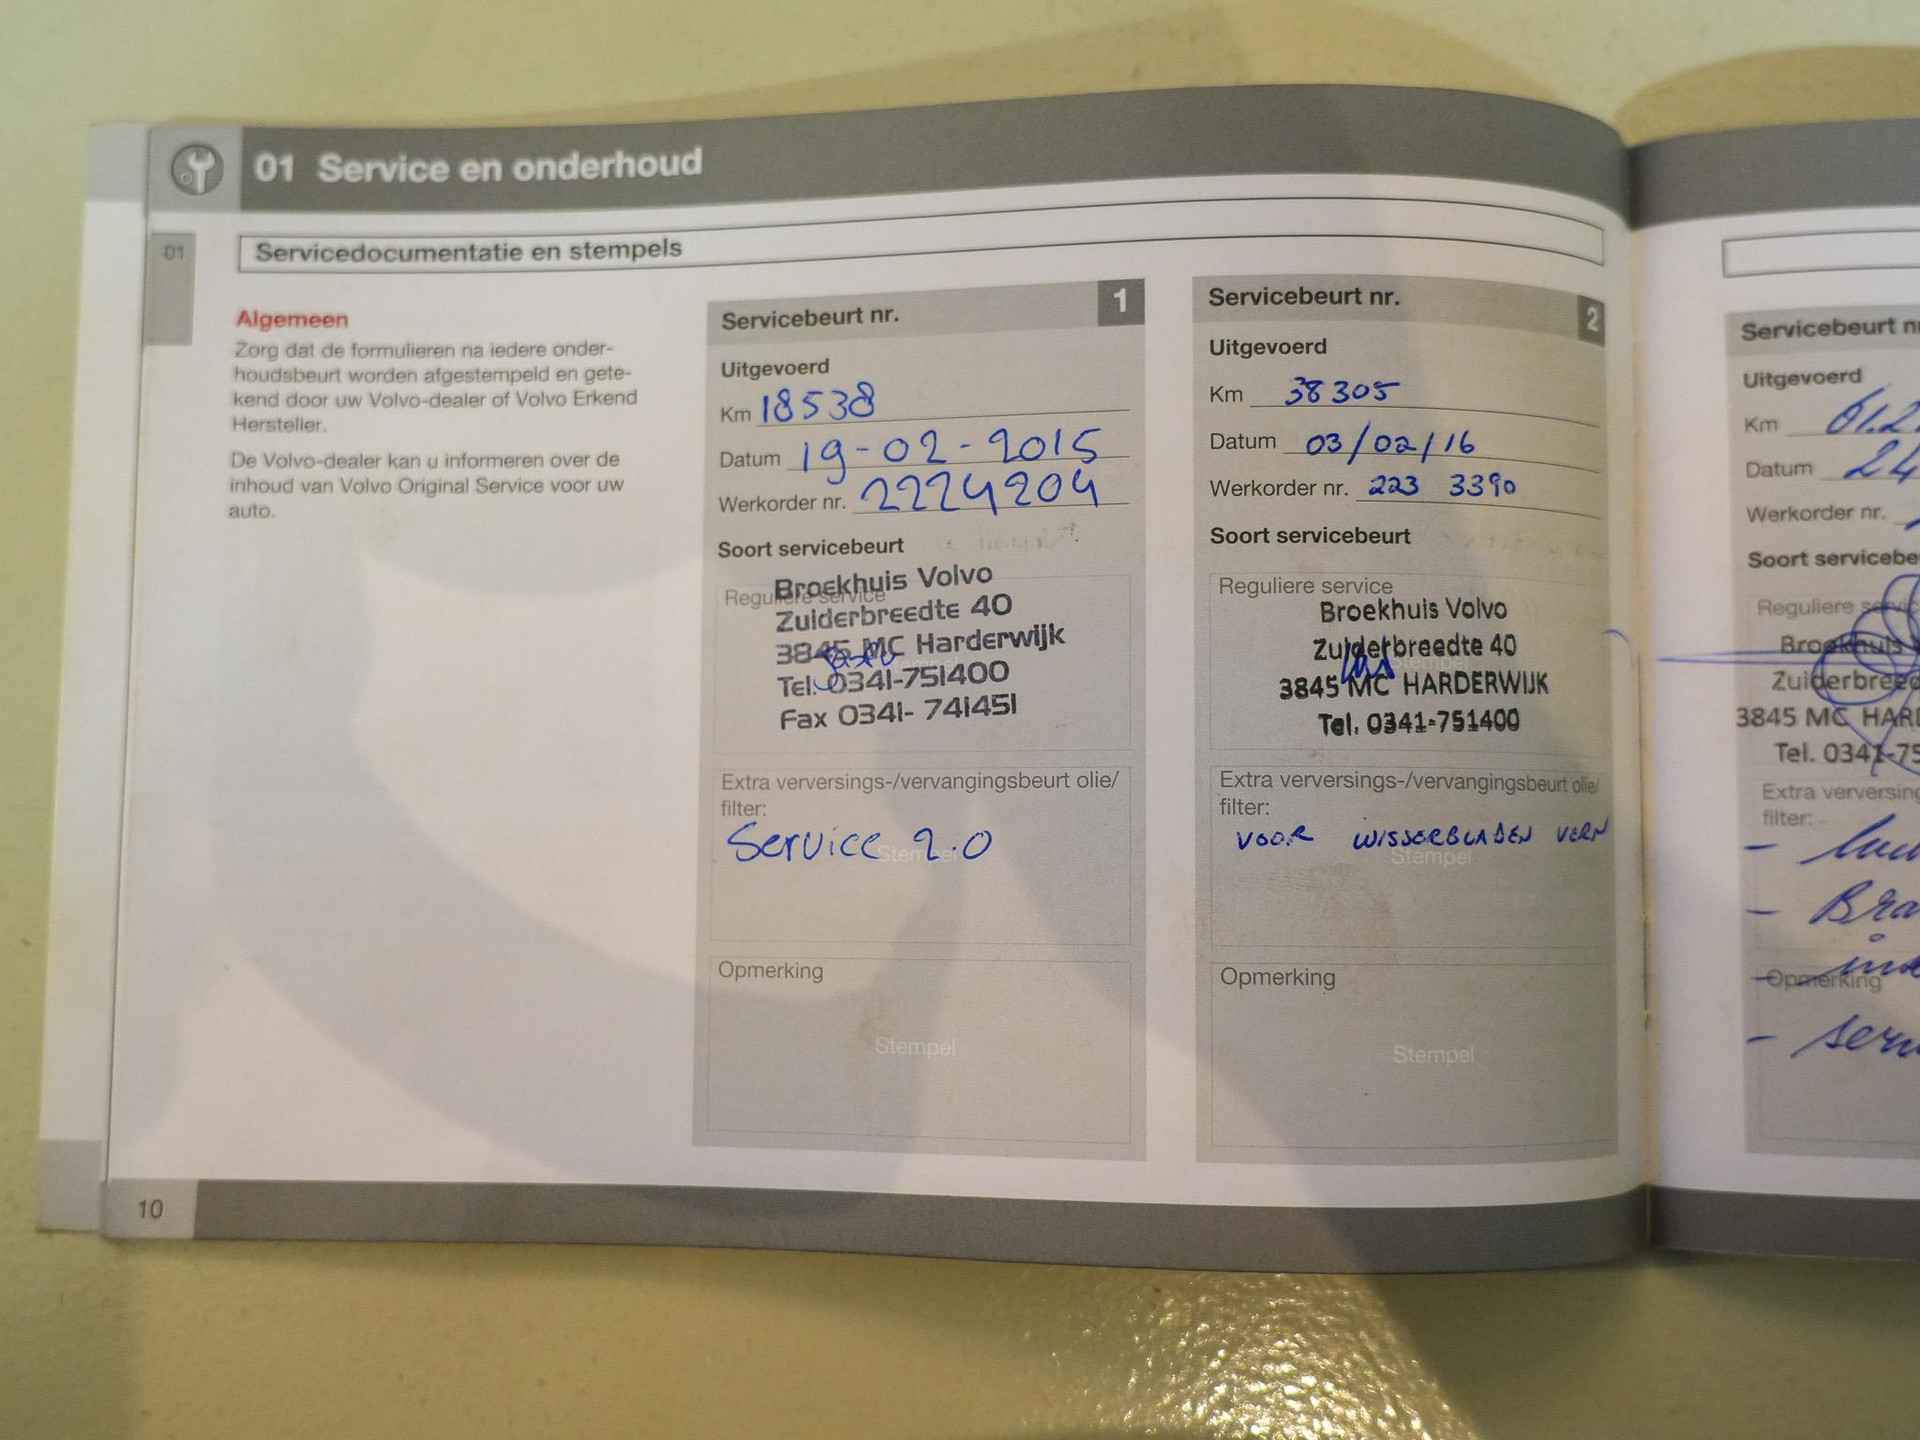 01 Service en onderhoud
01
Servicedocumentatie en stempels
Algemeen
Zorg dat de formulieren na iedere onder-
houdsbeurt worden afgestempeld en gete-
kend door uw Volvo-dealer of Volvo Erkend
Hersteller.
De Volvo-dealer kan u informeren over de
inhoud van Volvo Original Service voor uw
auto.
Servicebeurt nr. 1
Uitgevoerd
Km 18538
Datum 19-02-2015
Werkorder nr. 2224204
Soort servicebeurt
Reguliere service
Broekhuis Volvo
Zuiderbreedte 40
3845 MC Harderwijk
Stempel
Tel. 0341-751400
Fax 0341-741451
Extra verversings-/vervangingsbeurt olie/
filter:
Service 2.0
Stempel
Opmerking
Stempel
Servicebeurt nr. 2
Uitgevoerd
Km 38305
Datum 03/02/16
Werkorder nr. 223 3390
Soort servicebeurt
Reguliere service
Broekhuis Volvo
Zuiderbreedte 40
Stempel
3845 MC HARDERWIJK
Tel. 0341-751400
Extra verversings-/vervangingsbeurt olie/
filter:
VOOR WISSERBLADEN VERN
Stempel
Opmerking
Stempel
Servicebeurt nr
Uitgevoerd
Km 61.2
Datum 24
Werkorder nr.
Soort servicebe
Reguliere servic
Broekhuis
Zuiderbreed
3845 MC HAR
Tel. 0341-75
Extra verversing
filter:
- 
- Bra
Opmerking
- serv
10